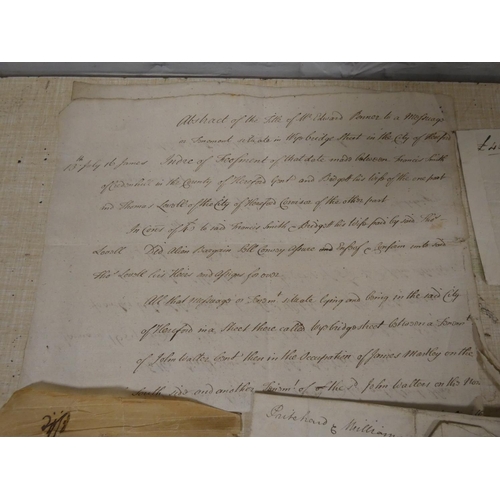 Abstract of the Title of Mr Edward Bower to a Messuage
or Tenement situate in Wyebridge Street in the City of Hereford
13th July 16 James Indre of Feofment of that date made between Francis Smith
in the County of Hereford Gent and Bridgett his Wife of the one part
and Thomas Lovell of the City of Hereford of the other part
In cons of to said Francis Smith & Bridget his Wife paid by said Thos
Lovell Did Alien Bargain Sell Convey and unto said
Thos Lovell his Heires and Assigns for ever
All that Messuage or Tenemt situate lying and being in the said City
of Hereford in a Street there called Wyebridge street between a Tenemt
of John Walter Gent then in the Occupation of James on the
South side and another Tenemt of of the sd John Walters on the
Pritchard & William
£4